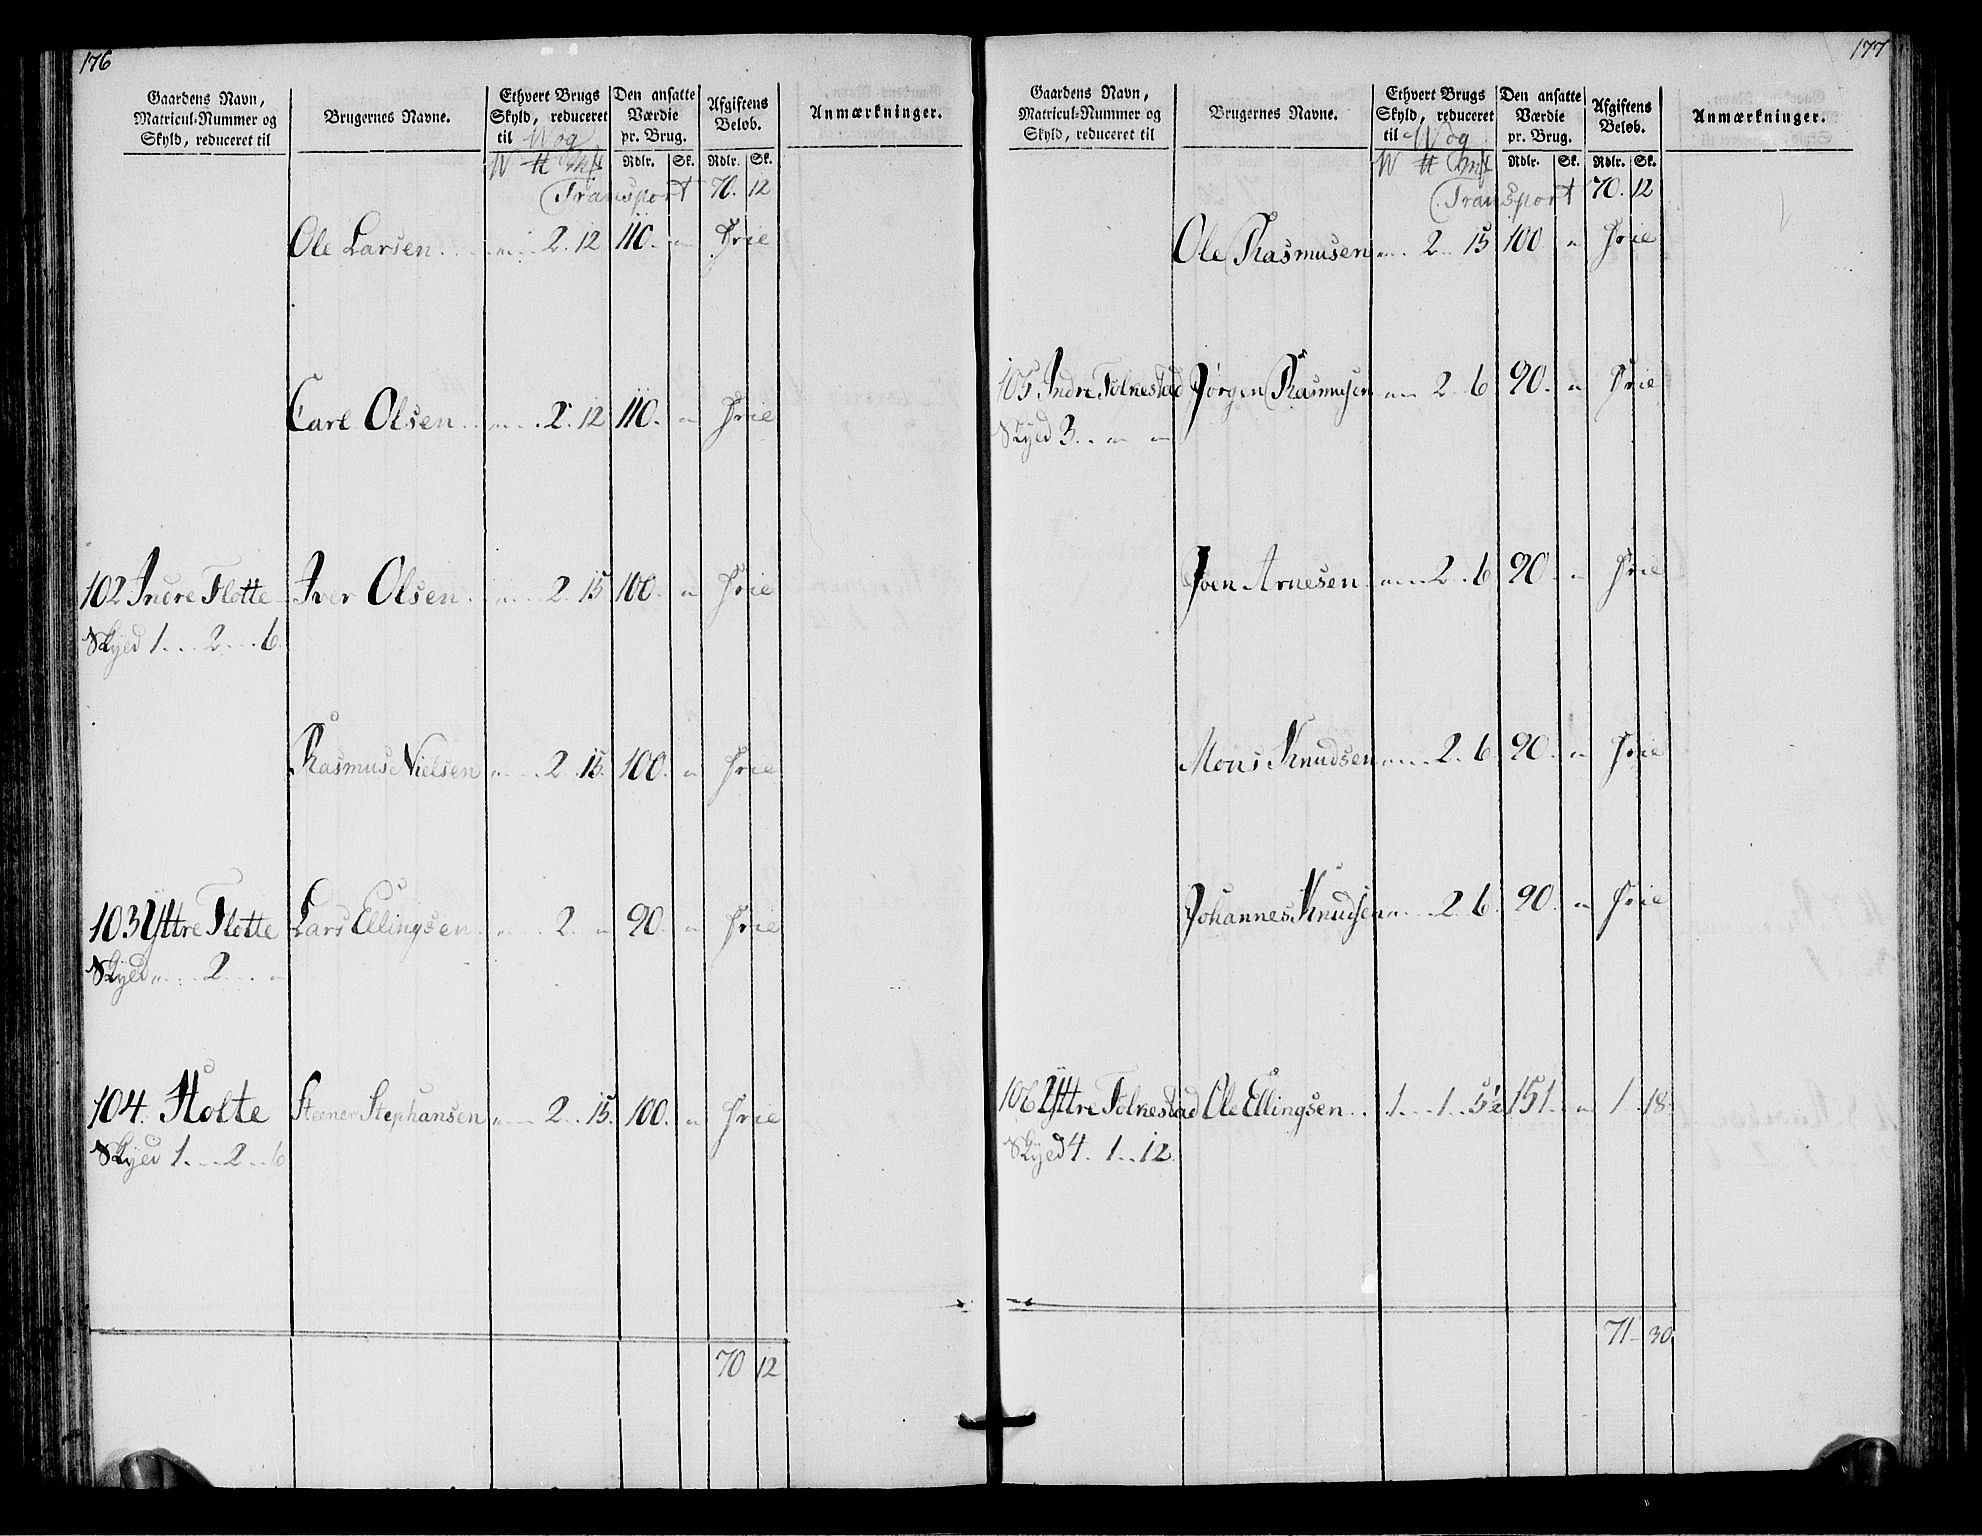 176
Gaardens Navn, Matricul-Nummer og Skyld, reduceret til
Brugernes Navne.
Ethvert Brugs Skyld, reduceret til Wog
Den ansatte Værdie pr. Brug.
Afgiftens Beløb.
Anmærkninger.
W # Mk Rdlr. Sk. Rdlr. Sk.
Transport 70. 12
Ole Larsen . . . „ . . 2. 12 110. „ Frie
Carl Olsen . . „ . . 2. 12 110. „ Frie
102 Indre Flotte Iver Olsen . . „ . . 2. 15 100. „ Frie
Skyld 1 . . . 2 . . . 6.
Rasmus Nielsen „ . . . 2. 15. 100. „ Frie
103 Yttre Flotte Lars Ellingsen . „ . . 2. „ 90. „ Frie
Skyld „ . . . 2 . . . „
104. Holte Steener Stephansen „ . . 2. . 15. 100. „ Frie
Skyld 1 . . . 2 . . 6
70 12
177
Gaardens Navn, Matricul-Nummer og Skyld, reduceret til
Brugernes Navne.
Ethvert Brugs Skyld, reduceret til Wog
Den ansatte Værdie pr. Brug.
Afgiftens Beløb.
Anmærkninger.
W # Mk Rdlr. Sk. Rdlr. Sk.
Transport 70. 12
Ole Rasmusen „ . . 2. 15 100 „ Frie
105 Indre Folkestad Jørgen Rasmusen „ . . 2. 6 90. „ Frie
Skyld 3. . „ „
Joen Arnesen . „ . . 2. . 6 90. „ Frie
Mons Knudsen „ . . . 2. 6. 90. „ Frie
Johannes Knudsen „ . . . 2. 6. 90. „ Frie
106 Yttre Folkestad Ole Ellingsen . . 1 . . 1 . . 5½ 151. „ 1. 18.
Skyld 4. . 1 . . 12.
71 30